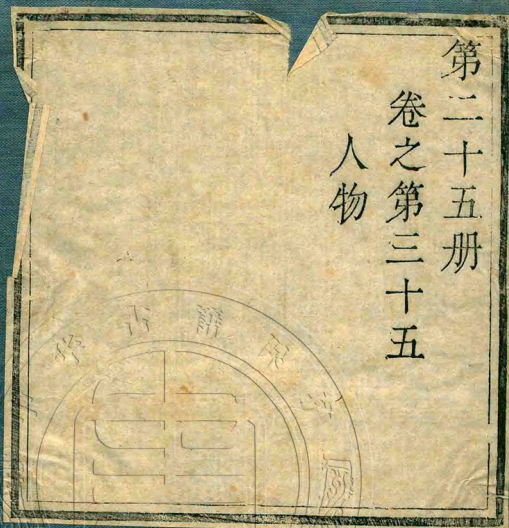 第二十五册
卷之第三十五
人物